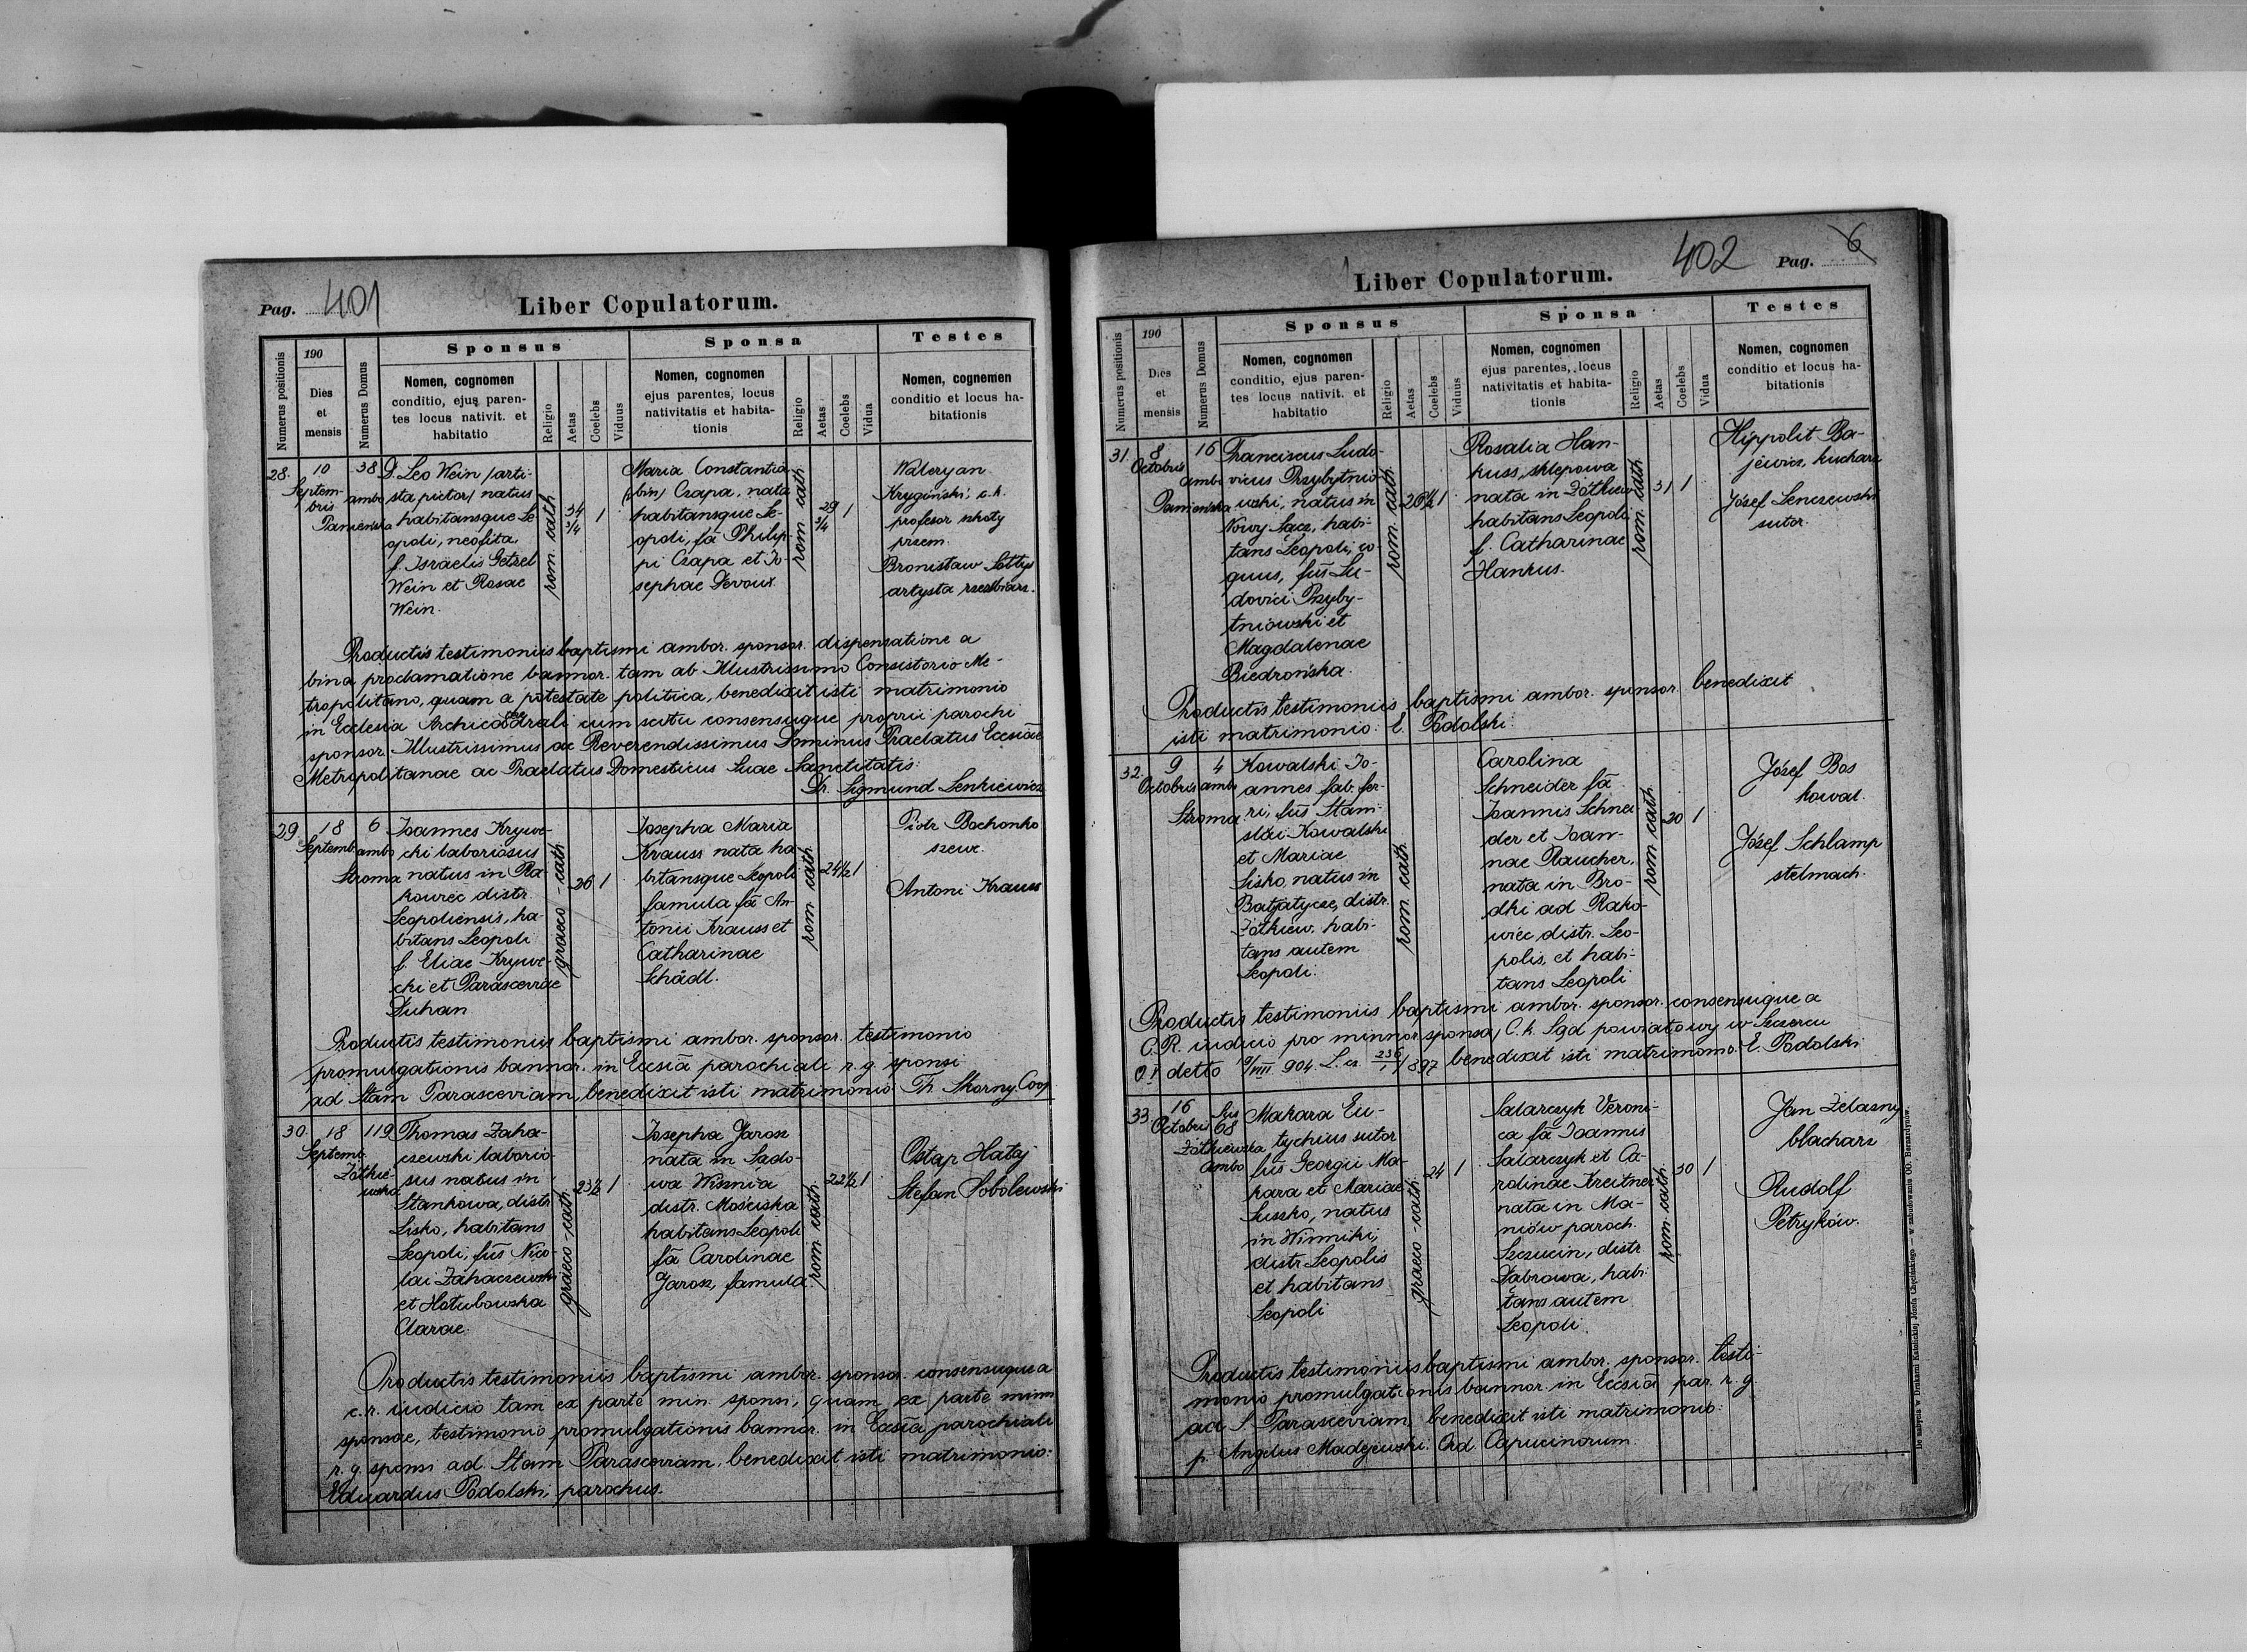 Pag. 401
Liber Copulatorum.
Numerus positionis
190
Dies
et
mensis
Numerus Domus
Sponsus
Nomen, cognomen
conditio, ejus paren-
tes locus nativit. et
habitatio
Religio
Aetas
Coelebs
Viduus
Sponsa
Nomen, cognomen
ejus parentes, locus
nativitatis et habita-
tionis
Religio
Aetas
Coelebs
Vidua
Testes
Nomen, cognemen
conditio et locus ha-
bitationis
28.
10
Septem
bris
38
ambo
Panieńska
D. Leo Wein /arti-
sta pictor/ natus
habitansque Le
opoli, neofita,
f. Israelis Getzel
Wein et Rosae
Wein.
rom cath
34
3/4
1
Maria Constantia
(bin) Czapa, nata
habitansque Le-
opoli, fa Philip-
pi Czapa et Jo-
sephae Devoux
rom cath
29
3/4
1
Waleryan
Krygiński, c.k.
profesor szkoły
przem.
Bronisław Sołtys
artysta rzeźbiarz.
Productis testimoniis baptismi ambor. sponsor. dispensatione a
bina proclamatione bannor. tam ab Illustrissimo Consistorio Me-
tropolitano, quam a potestate politica, benedixit isti matrimonio
in Ecclesia Archicathedrali cum scitu consensuque proprii parochi
sponsor. Illustrissimus ac Reverendissimus Dominus Praelatus Eccsiae
Metropolitanae ac Praelatus Domesticus Suae Sanctitatis:
Dr. Sigmund Lenkiewicz
29.
18
Septemb.
6
ambo
Stroma
Joannes Krywe-
cki laboriosus
natus in Ra
kowiec distr.
Leopoliensis, ha-
bitans Leopoli
f. Eliae Krywe-
cki et Parasceviae
Duhan
graeco-cath
26
1
Josepha Maria
Krauss nata ha
bitansque Leopoli
famula fa An-
tonii Krauss et
Catharinae
Schädl.
rom cath
24 1/2
1
Piotr Bochonko
szewc.
Antoni Krauss
Productis testimoniis baptismi ambor. sponsor. testimonio
promulgationis bannor. in Eccsiā parochiali r. g. sponsi
ad Stam Parasceviam, benedixit isti matrimonio: Th. Skorny Coop.
30.
18
Septemb.
119
Żółkie-
wska
Thomas Zaha-
czewski laborio
sus natus in
Stańkowa, distr.
Lisko, habitans
Leopoli, fus Nico-
lai Zahaczewski
et Hołubowska
Clarae.
graeco-cath
23 1/2
1
Josepha Jarosz
nata in Sado-
wa Wisznia
distr. Mościska
habitans Leopoli
fa Carolinae
Jarosz, famula.
rom cath
22 1/2
1
Ostap Hataj
Stefan Sobolewski
Productis testimoniis baptismi ambor. sponsor. consensuque a
c.r. iudicio tam ex parte min. sponsi, quam ex parte minn
sponsae, testimonio promulgationis bannor. in Eccsia parochiali
r. g. sponsi ad Stam Parasceviam. benedixit isti matrimonio:
Eduardus Podolski, parochus.
402 Pag. 6
Liber Copulatorum.
Numerus positionis
190
Dies
et
mensis
Numerus Domus
Sponsus
Nomen, cognomen
conditio, ejus paren-
tes locus nativit. et
habitatio
Religio
Aetas
Coelebs
Viduus
Sponsa
Nomen, cognomen
ejus parentes, locus
nativitatis et habita-
tionis
Religio
Aetas
Coelebs
Vidua
Testes
Nomen, cognomen
conditio et locus ha-
bitationis
31.
8
Octobris
16
ambo
Panieńska
Franciscus Ludo-
vicus Przybytnio
wski, natus in
Nowy Sącz, habi-
tans Leopoli, co
quus, fus Lu-
dovici Przyby-
tniowski et
Magdalenae
Biedrońska.
rom. cath.
26 1/2
1
Rosalia Han-
kuss, sklepowa
nata in Żółkiew
habitans Leopoli
f. Catharinae
Hankus.
rom. cath.
31
1
Hippolit Ba-
jewicz, kucharz
Józef Lenczewski
sutor.
Productis testimoniis baptismi ambor. sponsor. benedixit
isti matrimonio: E. Podolski.
32.
9
Octobris
4
ambo
Stroma
Kowalski Jo-
annes fab. fer-
ri, fus Stani-
slai Kowalski
et Mariae
Lisko, natus in
Batjatycze, distr.
Żółkiew. habi-
tans autem
Leopoli.
rom. cath.
Carolina
Schneider fa
Joannis Schnei
der et Joan-
nae Raucher,
nata in Bro-
dki ad Rako-
wiec distr. Leo-
polis, et habi-
tans Leopoli
rom cath
20
1
Józef Bos
kowal.
Józef Schlamp
stelmach.
Productis testimoniis baptismi ambor. sponsor. consensuque a
C.R. iudicio pro minnor. sponsa, C. k. Sąd powiatowy w Szczercu
O.I detto 19/VIII 904. L. cz. 236/1 /897 benedixit isti matrimonio: E. Podolski
33.
16
Octobris
68
Żółkiewska
ambo
Makara Eu-
tychius sutor
fus Georgii Ma-
kara et Mariae
Luszko, natus
in Winniki,
distr. Leopolis
et habitans
Leopoli
graeco-cath.
24
1
Salarczyk Veroni-
ca fa Joannis
Salarczyk et Ca-
rolinae Kreitner
nata in Ma-
niów paroch.
Szczucin, distr.
Dąbrowa, habi-
tans autem
Leopoli.
rom. cath.
30
1
Jan Żelazny
blacharz
Rudolf
Petryków.
Productis testimoniis baptismi ambor. sponsor. testi-
monio promulgationis bannor. in Eccsiā par. r. g.
ad S. Parasceviam, benedixit isti matrimonio:
p. Angelus Madejewski. Ord. Capucinorum.
Do nabycia w Drukarni Katolickiej Józefa Chęcińskiego — w zabudowaniu OO. Bernardynów.